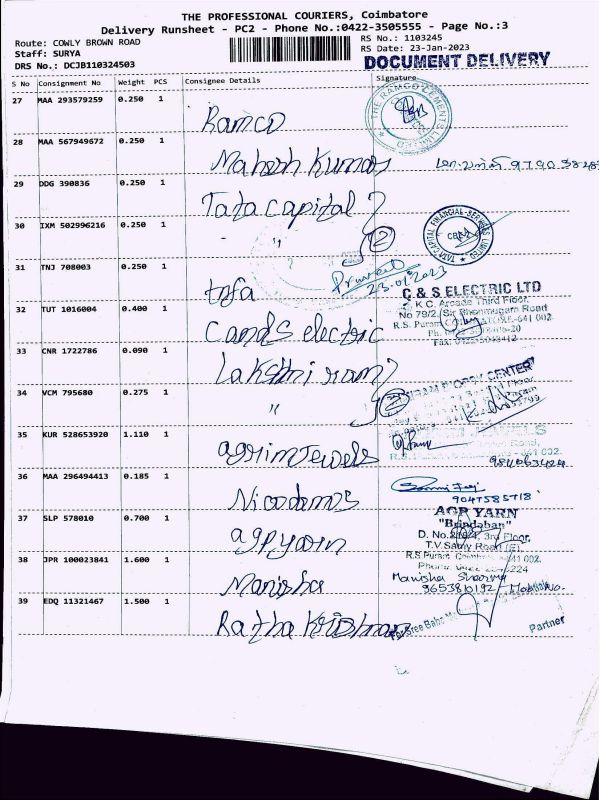 THE PROFESSIONAL COURIERS, Coimbatore
Delivery Runsheet - PC2 - Phone No.:0422-3505555 - Page No.:3
Route: COWLY BROWN ROAD
RS No.: 1103245
Staff: SURYA
RS Date: 23-Jan-2023
DRS No.: DCJB110324503
DOCUMENT DELIVERY
S No Consignment No Weight PCS Consignee Details Signature
27 MAA 293579259 0.250 1 Ramco
THE RAMCO CEMENTS LIMITED
28 MAA 567949672 0.250 1 Mahesh Kumar
29 DDG 390836 0.250 1 Tata capital
30 IXM 502996216 0.250 1 " 2
TATA CAPITAL FINANCIAL SERVICES LIMITED
31 TNJ 708003 0.250 1 tnfa
23.01.2023
32 TUT 1016004 0.400 1 Cands electric
C & S ELECTRIC LTD
K.C. Arcade Third Floor,
No 79/2, Sir Shanmugam Road
R.S. Puram, 641 002.
33 CNR 1722786 0.090 1 Lakshmi ram
34 VCM 795680 0.275 1 " 2
35 KUR 528653920 1.110 1 agrimJewels
36 MAA 296494413 0.185 1 Nicodamos
9047585718
37 SLP 578010 0.700 1 agpyarn
AGP YARN
"Brindaban"
3rd Floor,
T.V. Samy Road (E),
R.S. Puram, 641 002.
38 JPR 100023841 1.600 1 Manisha
Manisha Sharma
9653810192
39 EDQ 11321467 1.500 1 Ratha Krishnan
For Sree Baba
Partner